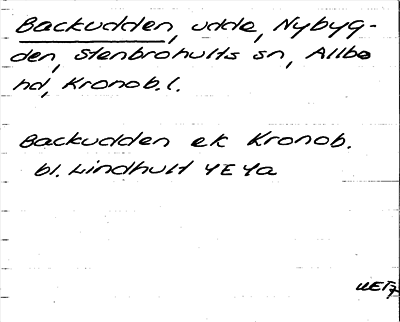 Backudden, udde, Nybyg-
den, Stenbrohults sn, Allbo
hd, Kronob.l.
Backudden ek Kronob.
bl. Lindhult 4E4a